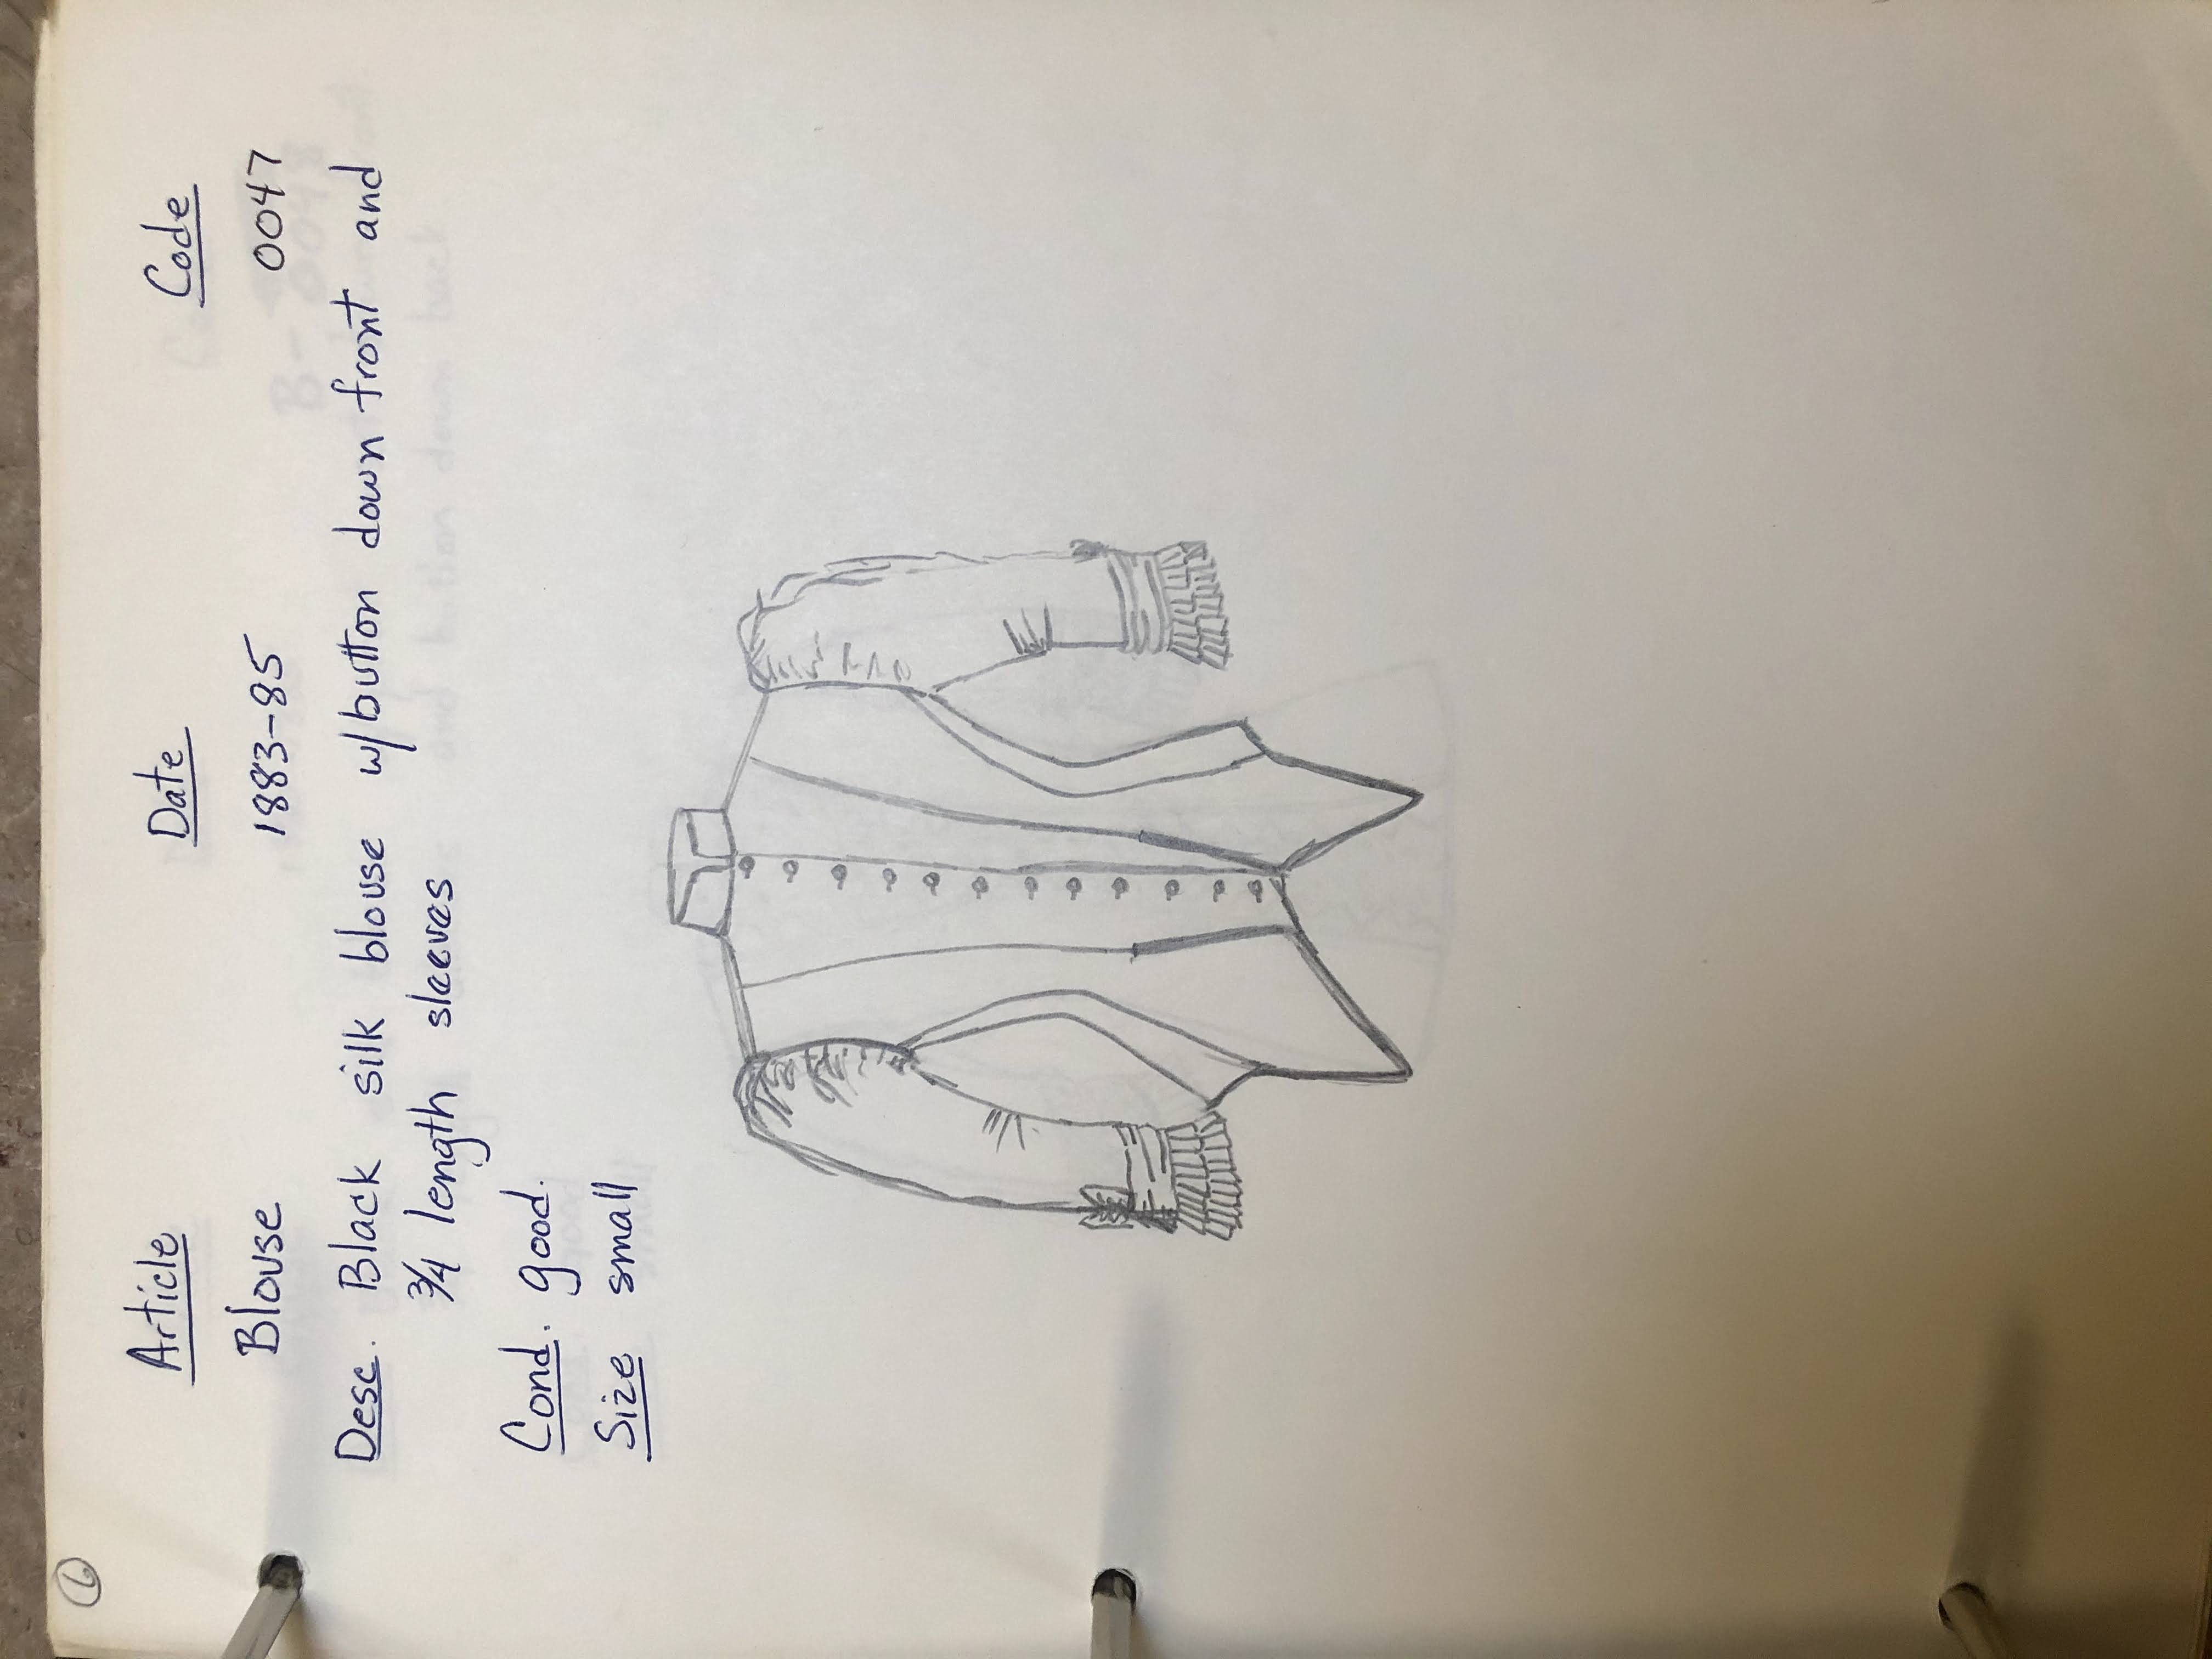 6
Article Date Code
Blouse 1883-85 0047
Desc. Black silk blouse w/ button down front and
3/4 length sleeves
Cond. good.
Size small
B-0048
and button down back